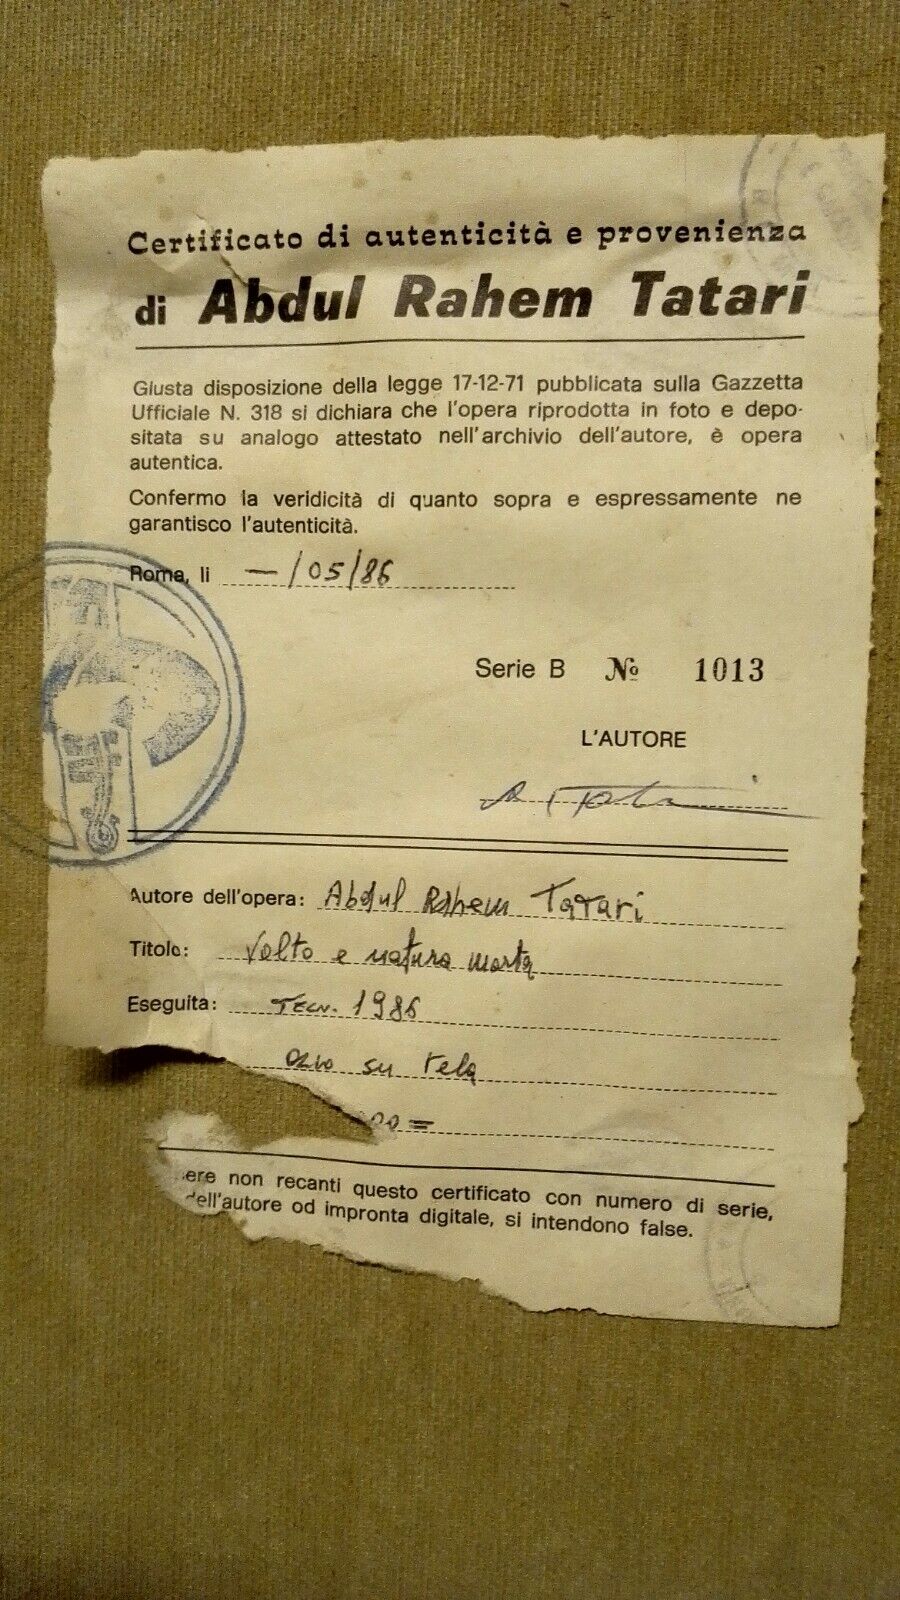 Certificato di autenticità e provenienza
di Abdul Rahem Tatari
Giusta disposizione della legge 17-12-71 pubblicata sulla Gazzetta
Ufficiale N. 318 si dichiara che l'opera riprodotta in foto e depo-
sitata su analogo attestato nell'archivio dell'autore, è opera
autentica.
Confermo la veridicità di quanto sopra e espressamente ne
garantisco l'autenticità.
Roma, li —/05/86
Serie B Nº 1013
L'AUTORE
Autore dell'opera: Abdul Rahem Tatari
Titolo: Volto e natura morta
Eseguita: Tecn. 1986
Olio su tela
00=
ere non recanti questo certificato con numero di serie,
dell'autore od impronta digitale, si intendono false.